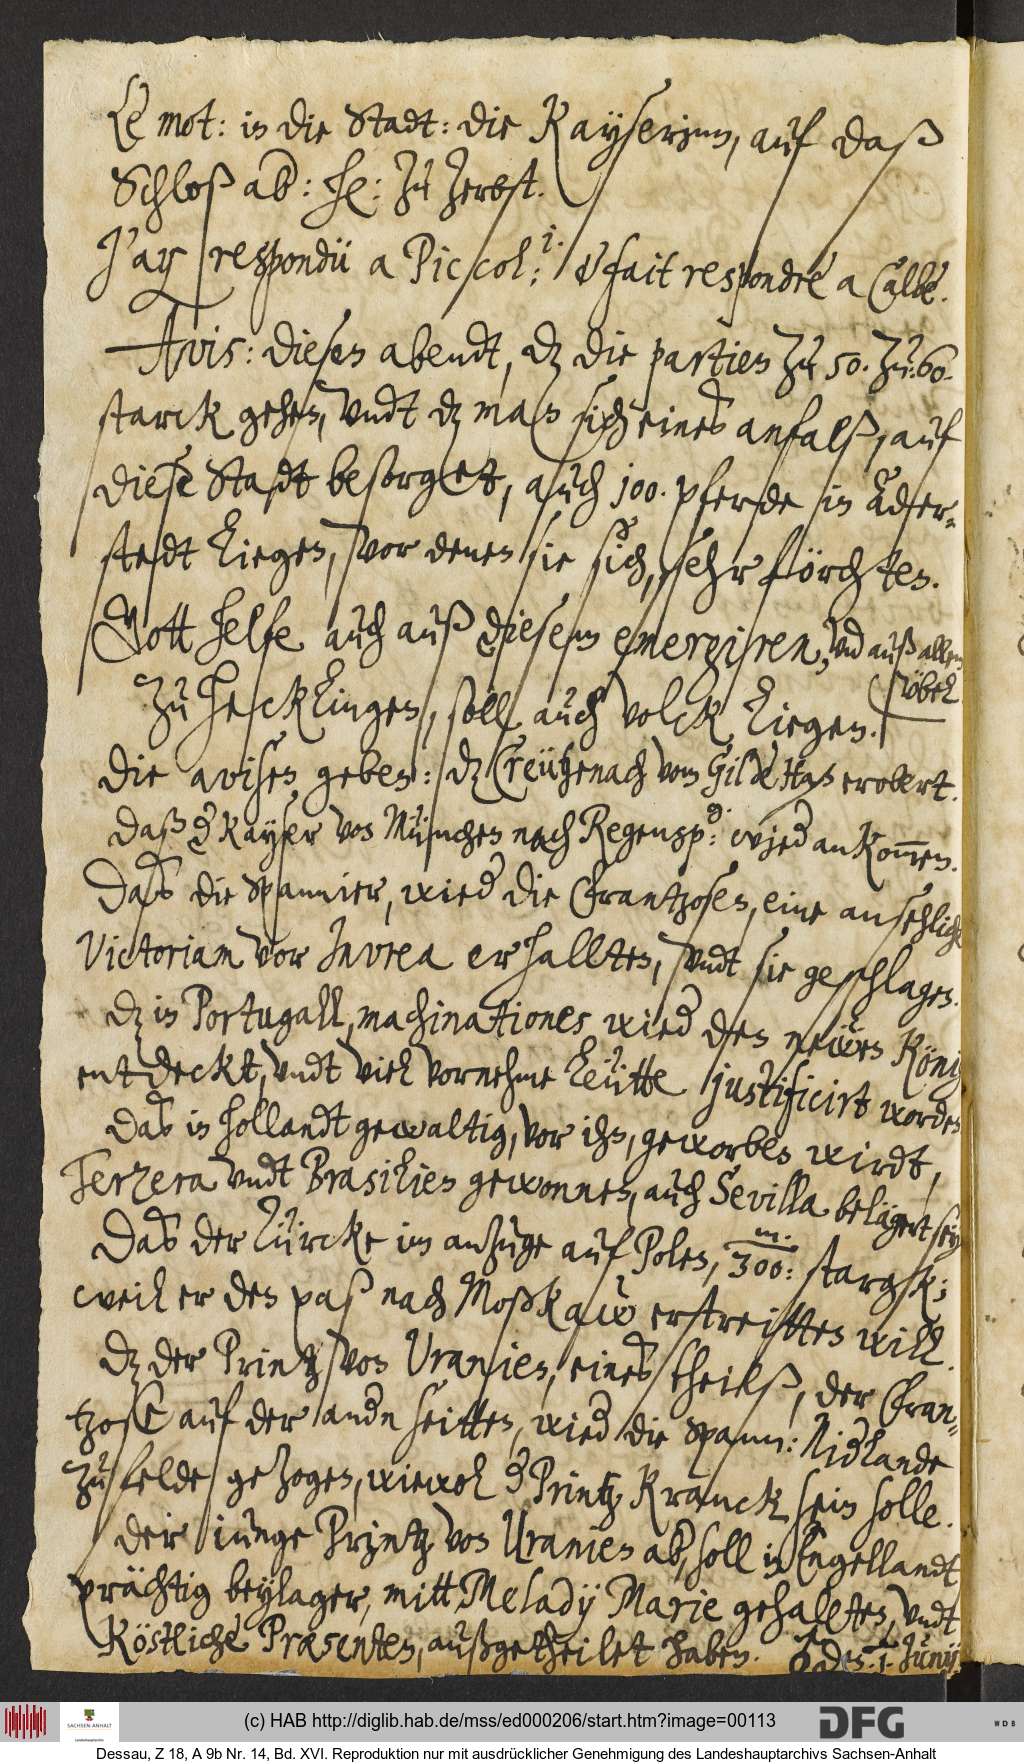 Le mot: in die Stadt: die Kayserinn, auf daß
Schloß ab: he: zu Zerbst.
J'ay respondü a Piccol:i. & fait respondre a Calbe.
Avis: diesen abendt, dz die partien zu 50. zu: 60.
starck gehen, vndt dz man sich eines anfalß, auf
diese Stadt besorget, auch 100. pferde in Ader-
stedt liegen, vor denen sie sich, sehr förchten.
Gott helfe auch auß diesem emergiren, vnd auß allem
übel
Zu Hecklingen, soll auch volck liegen.
Die avisen geben: dz Creützenach vom Gilde Has erobert.
Daß d Kayser von München nach Regensp:g. wied ankommen.
Das die Spannier, wied die Frantzosen, eine ansehliche
Victoriam vor Invrea erhallten, vndt sie geschlagen.
Dz in Portugall, machinationes wied den newen König
entdeckt, vndt viel vornehme leütte justificirt worden
Das in hollandt gewaltig, vor ihn, geworben wirdt,
Terzera vndt Brasilien gewonnen, auch Sevilla belägert sey
Das der Türcke im anzuge auf Polen, 300m.: starck;
weil er den paß nach Moßkaw erstreitten will.
Dz der Printz von Uranien, eines theilß, der Fran-
tzose auf der andn seitten, wied die Spann: Nidlande
zu felde gezogen, wiewol d Printz kranck sein solle.
Der iunge Printz von Uranien ab, soll in Engellandt
prächtig beylager, mitt Melady Marie gehallten, vndt
köstliche Præsenten, außgetheilet haben. den. 1. Junij
(c) HAB http://diglib.hab.de/mss/ed000206/start.htm?image=00113
SACHSEN-ANHALT
Landeshauptarchiv
DFG
WDB
Dessau, Z 18, A 9b Nr. 14, Bd. XVI. Reproduktion nur mit ausdrücklicher Genehmigung des Landeshauptarchivs Sachsen-Anhalt